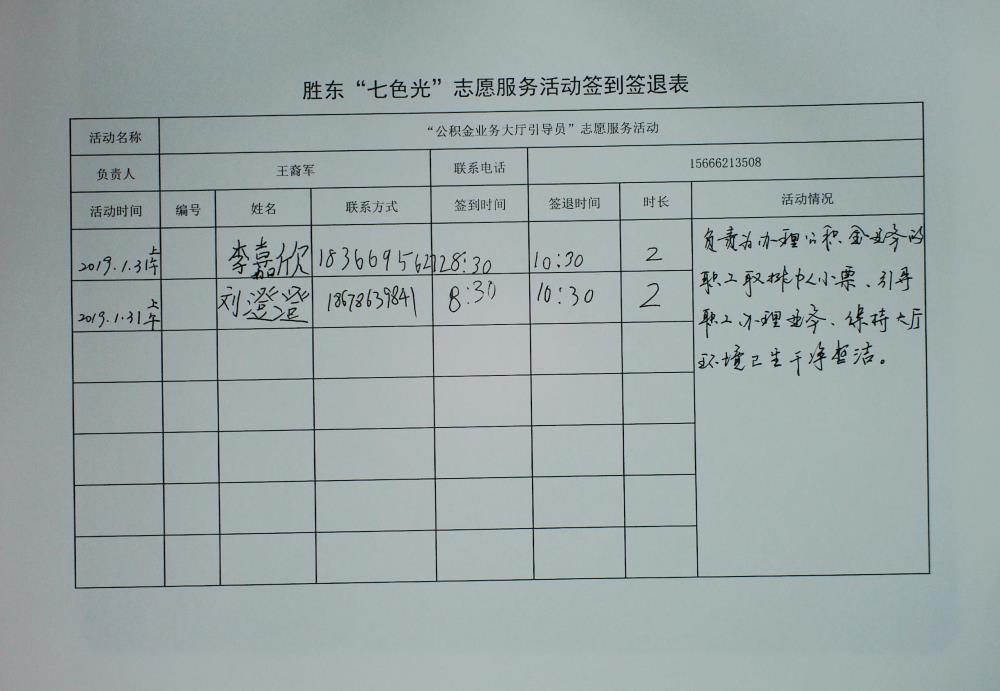 胜东“七色光”志愿服务活动签到签退表
活动名称 “公积金业务大厅引导员”志愿服务活动
负责人 王裔军 联系电话 15666213508
活动时间 编号 姓名 联系方式 签到时间 签退时间 时长 活动情况
2019.1.31上午 李嘉欣 18366956272 8:30 10:30 2
2019.1.31上午 刘澄澄 18678639841 8:30 10:30 2
负责为办理公积金业务的
职工取排队小票、引导
职工办理业务、保持大厅
环境卫生干净整洁。